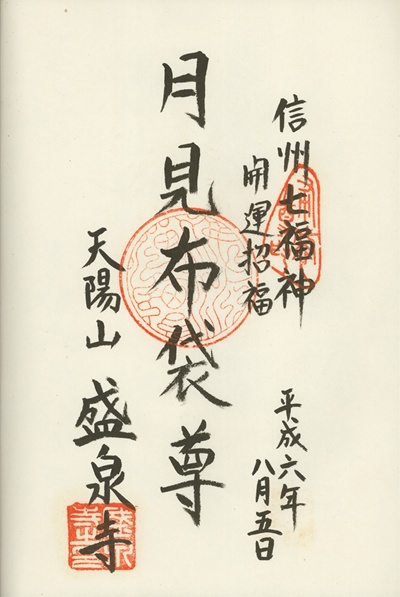 信州七福神
開運招福
平成六年
八月五日
月見布袋尊
天陽山
盛泉寺